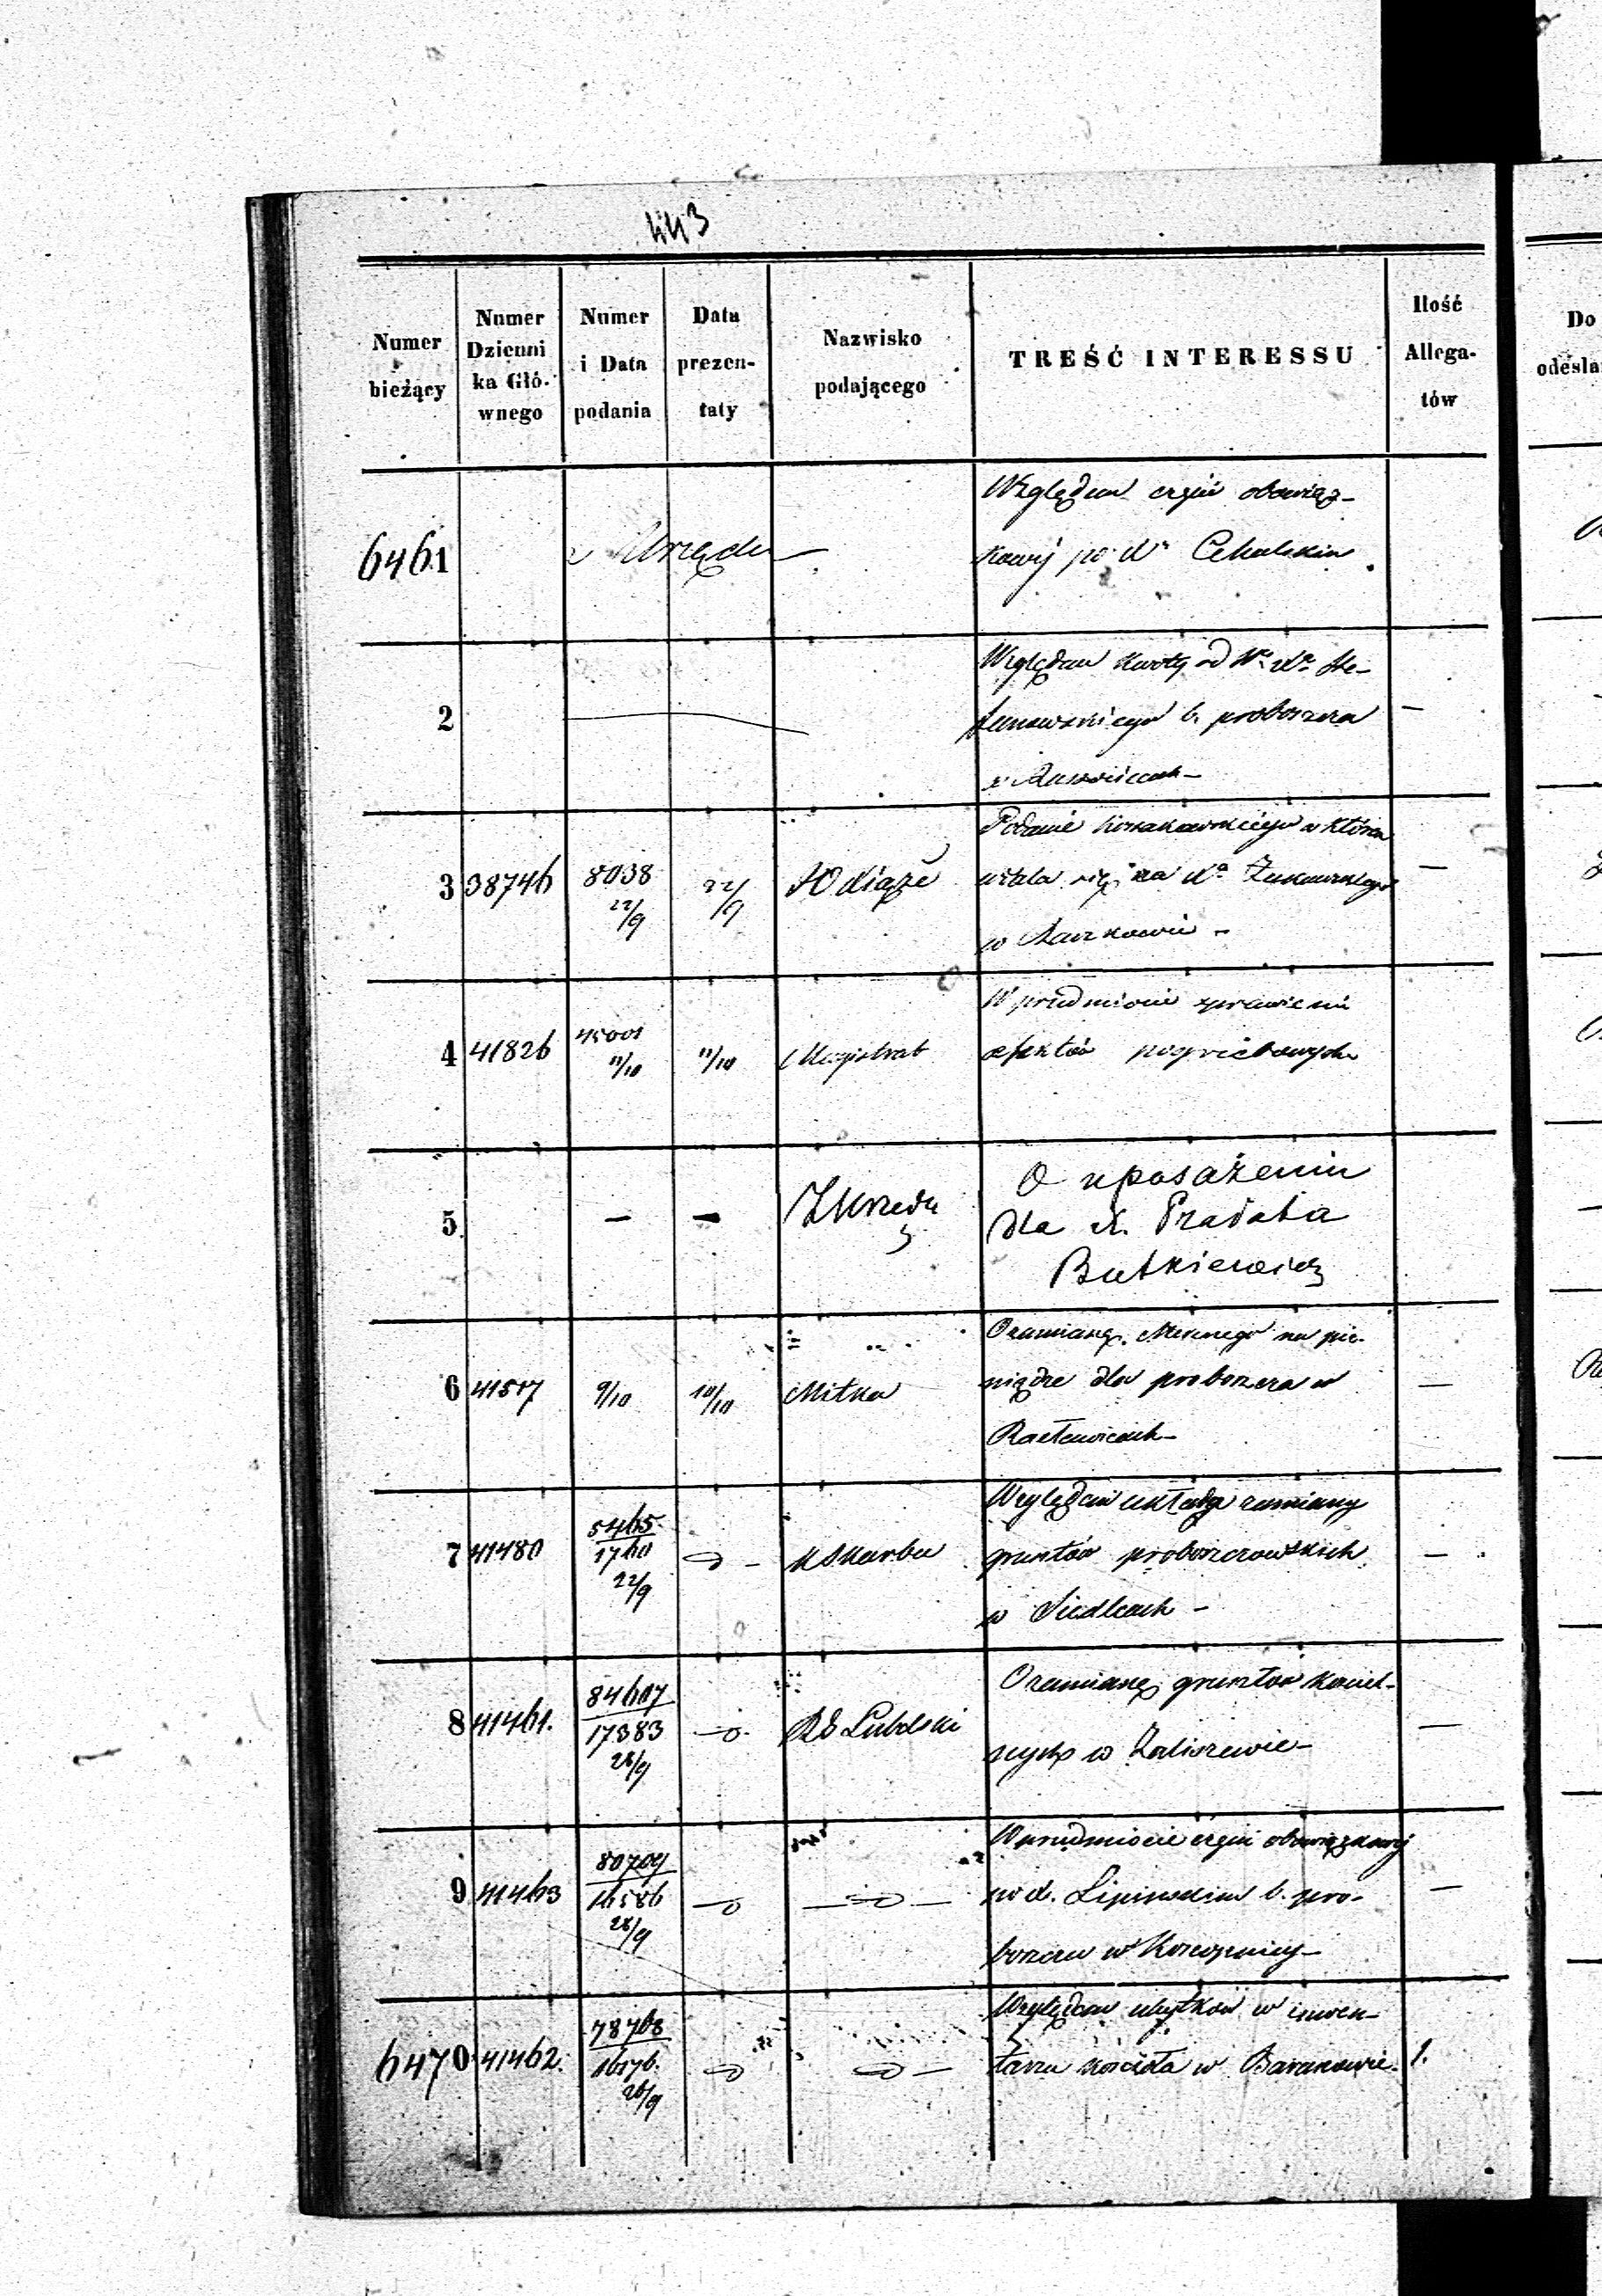 443
Numer bieżący
Numer Dzienni ka Głó- wnego
Numer i Data podania
Data prezen- taty
Nazwisko podającego
TREŚĆ INTERESSU
Ilość Allega- tów
Do
odesła
6461
z Urzędu
Względem części obowiąz-
kowéj po
2
Względem kwoty od
b. proboszcza
3 38746 8038 22/9 22/9
Podanie
się na
w
4 41826 45001 11/10 11/10 Magistrat
W przedmiocie sprawienia
efektów pogrzebowych
5 — — Z Urzędu
O uposażeniu
dla X. Prałata
Butkiewicz
6 41517 9/10 10/10 Mitka
O zamianę Mesznego na pie-
niądze dla proboszcza w
Racławicach —
7 41480 5465 1760 22/9 K Skarbu
Względem układu zamiany
gruntów proboszczowskich
w Siedlcach —
8 41461. 84607 17383 28/9 Lubelski
O zamianę gruntów kościel-
nych w Zaliszewie —
9 41463 80709 16586 28/9
W przedmiocie części obowiązkowej
po X. Lipinskim b. pro-
boszczu w Konopnicy —
6470 41462. 78708 16176. 28/9
Względem ubytków w inwen-
tarzu kościoła w Baranowie. 1.